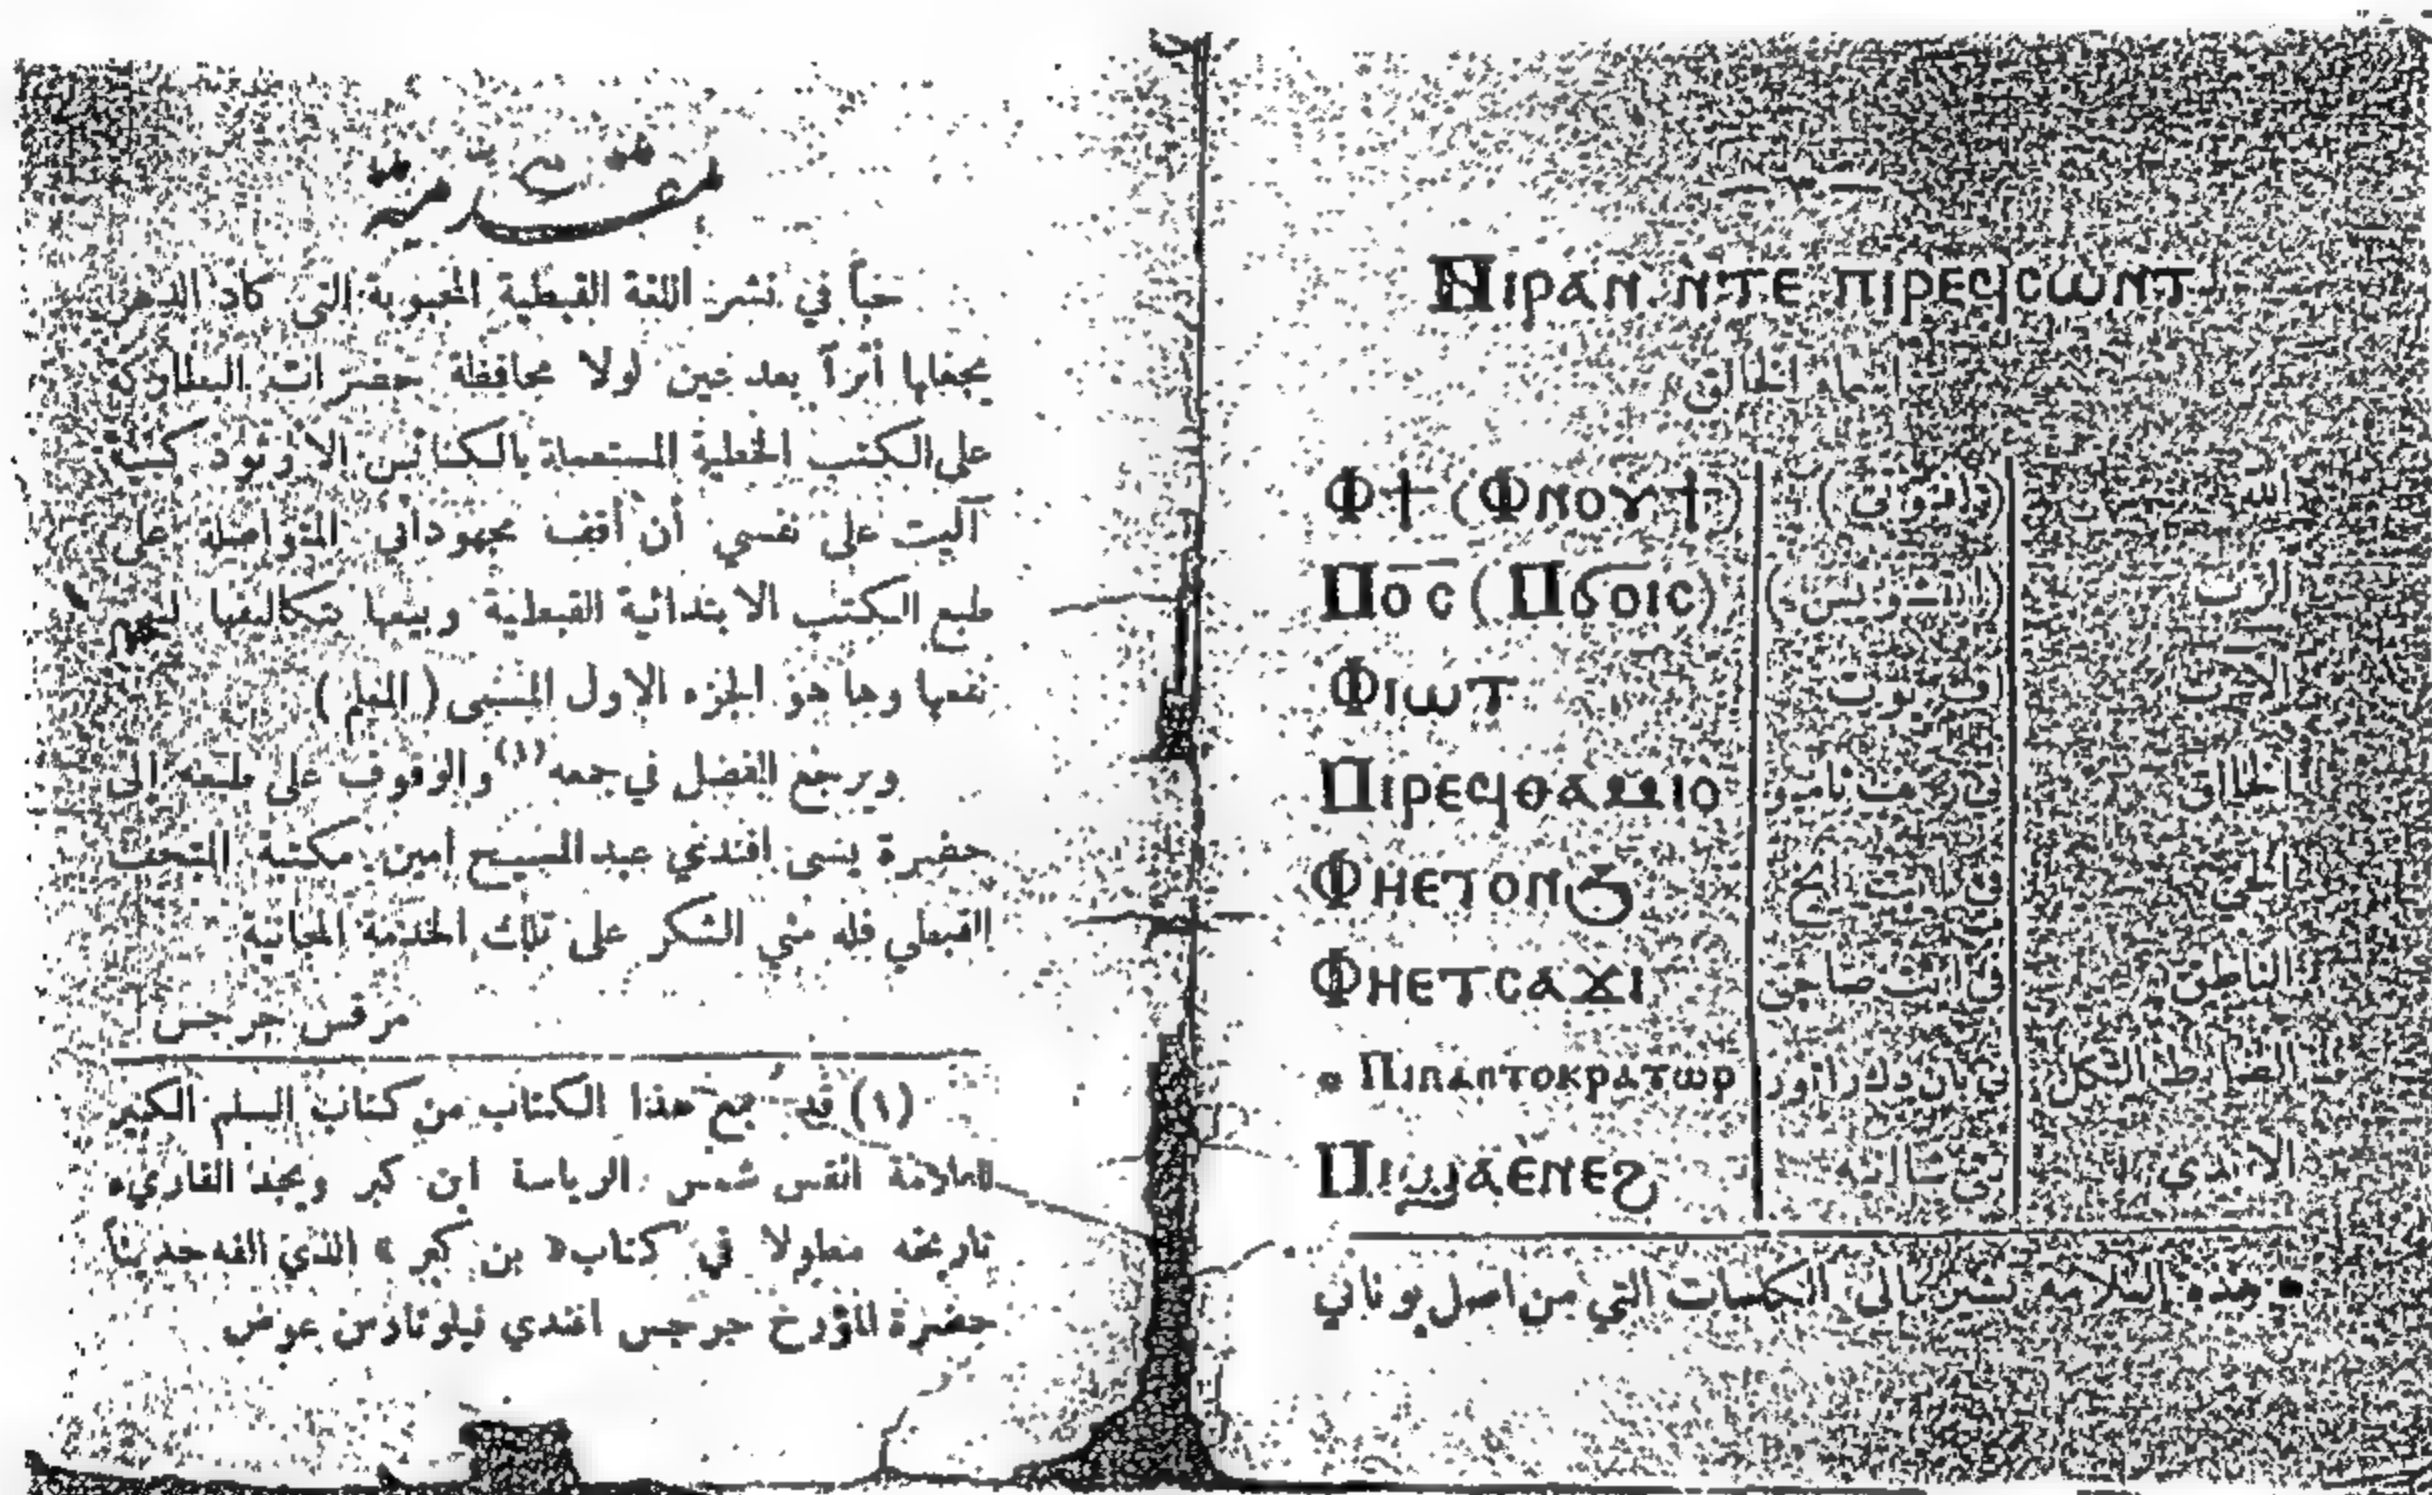 مقدمة
حباً في نشر اللغة القبطية المحبوبة التى كاد الدهر
يجعلها أثراً بعد عين لولا محافظة حضرات البطاركة
على الكتب الخطية المستعملة بالكنائس الارثوذكسية
آليت على نفسي أن أقف مجهوداتى المتواصلة على
طبع الكتب الابتدائية القبطية وبيعها بتكاليفها ليعم
نفعها وها هو الجزء الاول المسمى (السلم)
ويرجع الفضل في جمعه (١) والوقوف على طبعه الى
حضرة يسى افندي عبد المسيح امين مكتبة المتحف
القبطي فله مني الشكر على تلك الخدمة المجانية
مرقس جرجس
(١) قد جمع هذا الكتاب من كتاب السلم الكبير
للعلامة القس شمس الرياسة ابن كبر ويجد القاريء
تاريخه مطولا في كتاب « بن كبر » الذي الفه حديثاً
حضرة المؤرخ جرجس افندي فيلوثاؤس عوض
Ⲛⲓⲣⲁⲛ ⲛ̀ⲧⲉ ⲡⲓⲣⲉϥⲥⲱⲛⲧ
اسماء الخالق
Ⲫϯ (Ⲫⲛⲟⲩϯ) (افنوتى) الله
Ⲡⲟ̅ⲥ̅ (Ⲡϭⲟⲓⲥ) الرب
Ⲫⲓⲱⲧ ف يوت الآب
Ⲡⲓⲣⲉϥⲑⲁⲙⲓⲟ الخالق
Ⲫⲏⲉⲧⲟⲛϧ الحى
Ⲫⲏⲉⲧⲥⲁϫⲓ فى ات صاجى الناطق
• Ⲡⲓⲡⲁⲛⲧⲟⲕⲣⲁⲧⲱⲣ الضابط الكل
Ⲡⲓϣⲁⲉⲛⲉϩ الابدى
• هذه العلامه تشير الى الكلمات التي من اصل يوناني